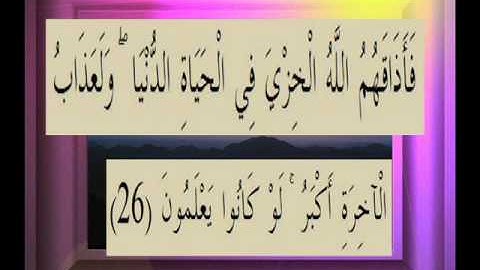 فَأَذَاقَهُمُ اللَّهُ الْخِزْيَ فِي الْحَيَاةِ الدُّنْيَا ۖ وَلَعَذَابُ
الْآخِرَةِ أَكْبَرُ ۚ لَوْ كَانُوا يَعْلَمُونَ (26)